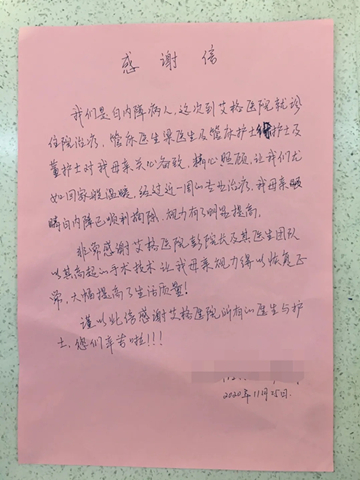 感谢信
我们是白内障病人,这次到艾格医院就诊
住院治疗,管床医生梁医生及管床护士护士及
董护士对我母亲关心备致,精心照顾,让我们尤
如回家般温暖,经过近一周的专业治疗,我母亲眼
睛白内障已顺利摘除,视力有了明显提高。
非常感谢艾格医院彭院长及其医生团队
以其高超的手术技术让我母亲视力得以恢复正
常,大幅提高了生活质量!
谨以此信感谢艾格医院所有的医生与护
士,您们辛苦啦!!!
2020年11月25日.